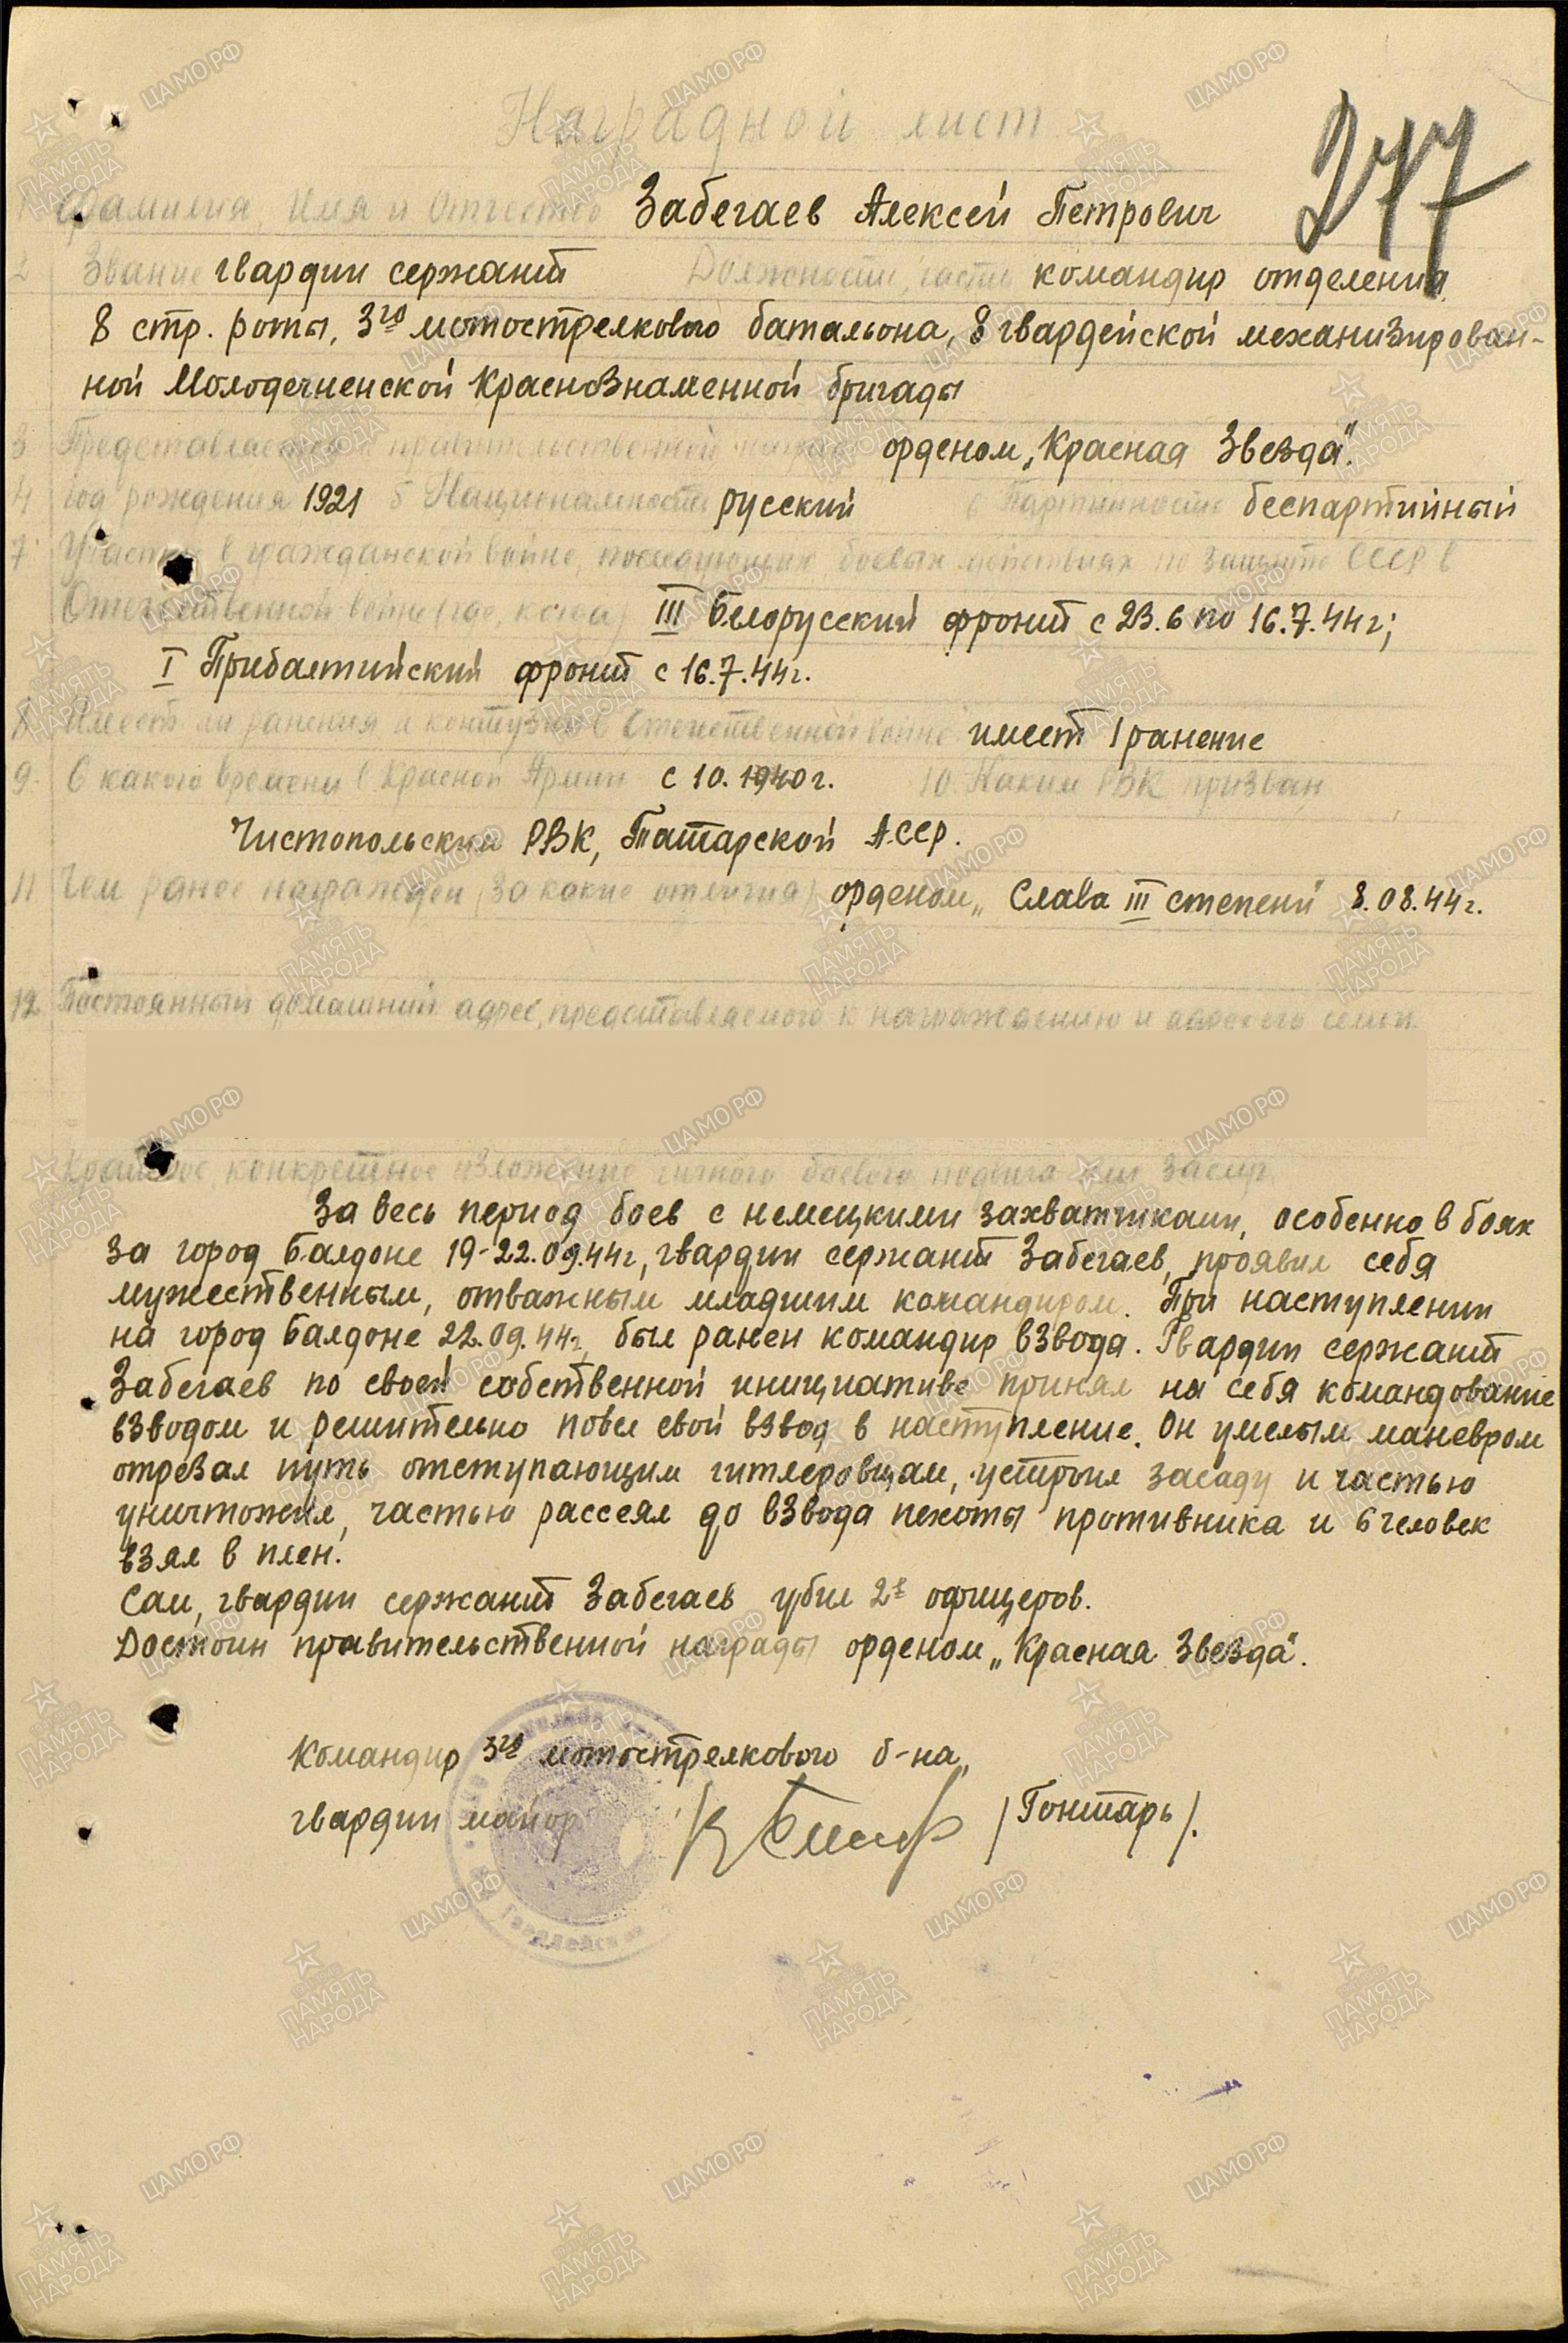 Наградной лист
277
1 Фамилия, Имя и Отчество Забегаев Алексей Петрович
2 Звание гвардии сержант Должность, часть командир отделения
8 стр. роты, 3го мотострелкового батальона, 8 гвардейской механизирован-
ной Молодечненской Краснознаменной бригады
3 Представляется правительственной награде орденом „Красная Звезда".
4 год рождения 1921 5 Национальность русский 6 Партийность беспартийный
7 Участие в гражданской войне, последующих боевых действиях по защите СССР в
Отечественной войне (где, когда) III Белорусский фронт с 23.6 по 16.7.44г;
I Прибалтийский фронт с 16.7.44г.
8 Имеет ли ранения и контузии в Отечественной войне имеет 1 ранение
9. С какого времени в Красной Армии с 10.1940г. 10. Каким РВК призван
Чистопольский РВК, Татарской АССР.
11 Чем ранее награжден (за какие отличия) орденом „Слава III степени" 8.08.44г.
12 Постоянный домашний адрес, представляемого к награждению и адрес его семьи
Краткое, конкретное изложение личного боевого подвига или заслуг
За весь период боев с немецкими захватчиками, особенно в боях
за город Балдоне 19-22.09.44г, гвардии сержант Забегаев, проявил себя
мужественным, отважным младшим командиром. При наступлении
на город Балдоне 22.09.44г, был ранен командир взвода. Гвардии сержант
Забегаев по своей собственной инициативе принял на себя командование
взводом и решительно повел свой взвод в наступление. Он умелым маневром
отрезал путь отступающим гитлеровцам, устроил засаду и частью
уничтожил, частью рассеял до взвода пехоты противника и 6 человек
взял в плен.
Сам, гвардии сержант Забегаев убил 2х офицеров.
Достоин правительственной награды орденом „Красная Звезда".
Командир 3го мотострелкового б-на,
гвардии майор /Гонтарь/.